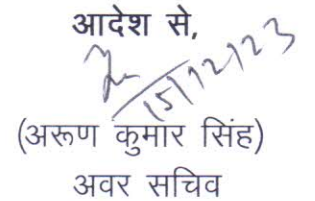 आदेश से,
15/12/23
(अरूण कुमार सिंह)
अवर सचिव